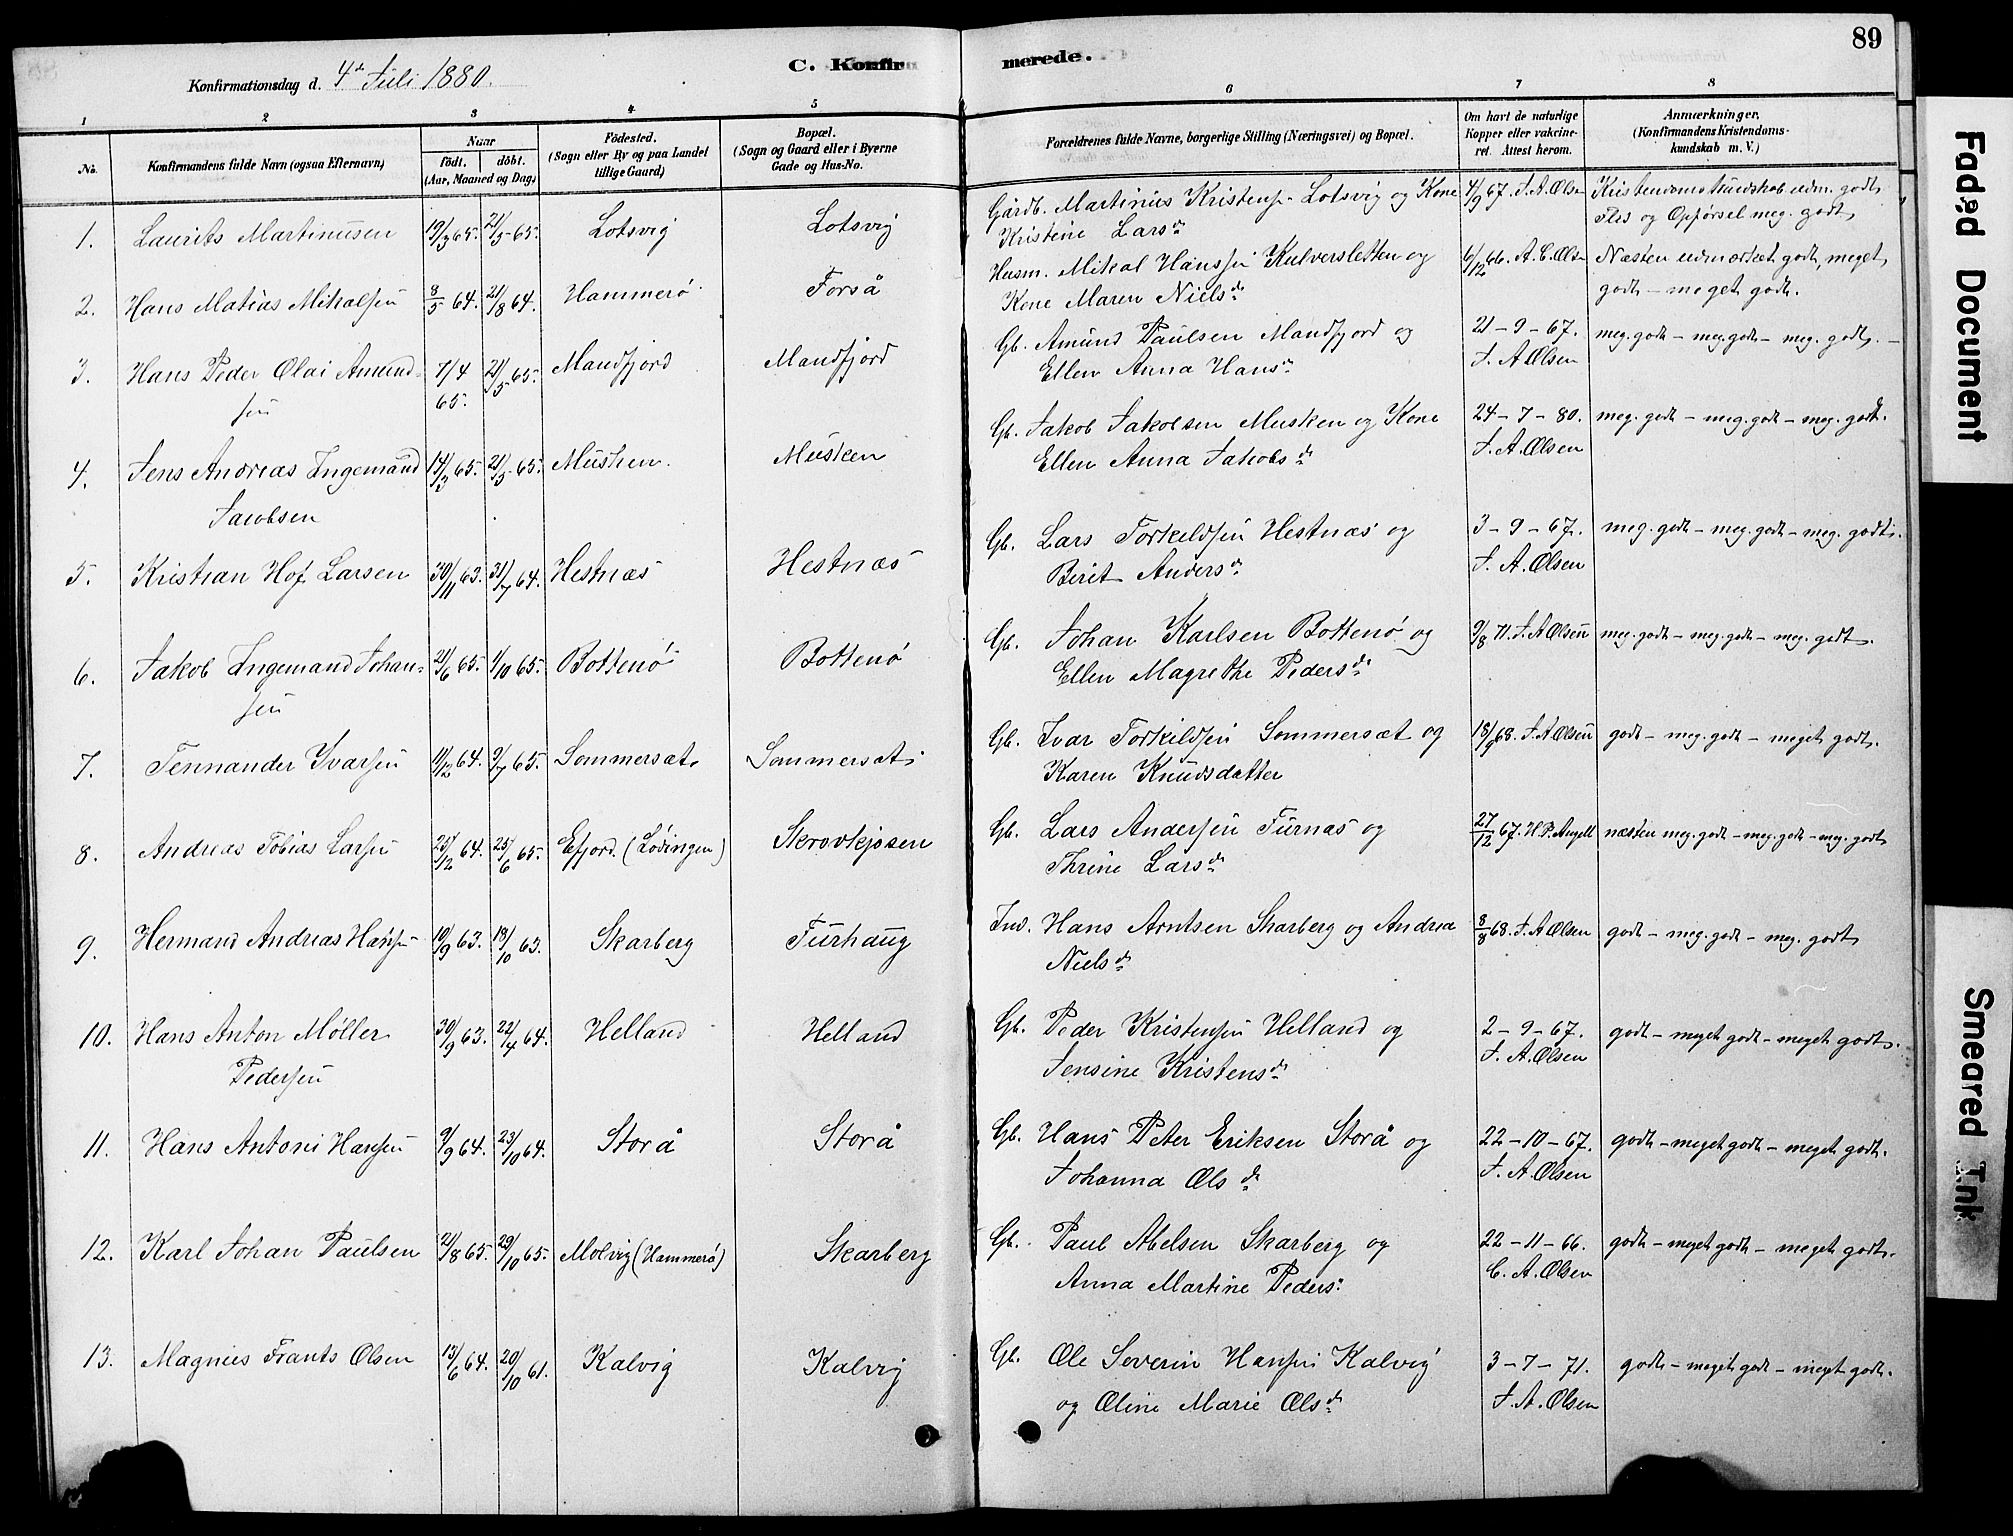 89
Konfirmationsdag d. 4de Juli 1880.
C. Konfirmerede.
1 2 3 4 5 6 7 8
No. Konfirmandens fulde Navn (ogsaa Efternavn) Naar født. døbt. (Aar, Maaned og Dag) Fødested. (Sogn eller By og paa Landet tillige Gaard) Bopæl. (Sogn og Gaard eller i Byerne Gade og Hus-No. Forældrenes fulde Navne, borgerlige Stilling (Næringsvei) og Bopæl. Om havt de naturlige Kopper eller vakcineret. Attest herom. Anmærkninger. (Konfirmandens Kristendomskundskab m. V.)
1. Laurits Martinusen 19/3 65. 21/5 65. Lotsvig Lotsvig Gårdb. Martinus Kristens. Lotsvig og Kone 4/9 67. J. A. Olsen Kristendomskundskab udm. godt
Kristine Larsdr Flis og Opførsel meg. godt
2. Hans Matias Mikalsen 8/5 64. 21/8 64. Hammerø Forså Husm. Mikal Hanssen Kulversletten og 6/12 66. A. C. Olsen Næsten udmærket godt, meget
Kone Maren Nielsdr godt - meget godt.
3. Hans Peder Olai Amund- 7/4 65. 21/5 65. Mandfjord Mandfjord Gb. Amund Paulsen Mandfjord og 21-9-67. meg. godt - meg. godt - meg. godt. -
sen Ellen Anna Hansdr J. A. Olsen
4. Jens Andreas Ingemand 14/3 65. 21/5 65. Musken. Musken Gb. Jakob Jakobsen Musken og Kone 24-7-80. meg. godt - meg. godt - meg. godt.
Jacobsen Ellen Anna Jakobsdr J. A. Olsen
5. Kristian Hof Larsen 30/11 63. 31/7 64. Hestnæs Hestnæs Gb. Lars Torkildsen Hestnæs og 3-9-67. meg. godt - meg. godt - meg. godt.
Berit Andersdr J. A. Olsen
6. Jakob Ingemand Johan- 21/6 65. 1/10 65. Bottenø Bottenø Gb. Johan Karlsen Bottenø og 9/8 71. J. A. Olsen meg. godt - meg. godt - meg. godt.
sen Ellen Magrethe Pedersdr
7. Fennander Ivarsen 11/12 64. 9/7 65. Sommersæt. Sommersæt Gb. Ivar Torkildsen Sommersæt og 18/9 68. J. A. Olsen godt - meg. godt - meget godt.
Karen Knudsdatter
8. Andreas Tobias Larsen 25/12 64. 25/6 65. Efjord. (Lødingen) Skrovkjosen Gb. Lars Andersen Furnæs og 27/12 67. H. P. Angell næsten meg. godt - meg. godt - meg. godt
Thrine Larsdr
9. Hermand Andreas Hansen 10/9 63. 18/10 63. Skarberg Furhaug Ind. Hans Arntsen Skarberg og Andrea 8/8 68. J. A. Olsen godt - meg. godt - meg. godt
Nielsdr
10. Hans Anton Møller 30/9 63. 22/4 64. Helland Helland Gb. Peder Kristensen Helland og 2-9-67. godt - meget godt - meget godt.
Pedersen Jensine Kristensdr J. A. Olsen
11. Hans Antoni Hansen 9/9 64. 23/10 64. Storå Storå Gb. Hans Peter Eriksen Storå og 22-10-67. godt - meget godt - meget godt.
Johanna Olsdr J. A. Olsen
12. Karl Johan Paulsen 21/8 65. 29/10 65. Molvig (Hammerø) Skarberg Gb. Paul Abelsen Skarberg og 22-11-66. godt - meget godt - meget godt.
Anna Martine Pedersdr C. A. Olsen
13. Magnus Frants Olsen 13/6 64. 20/10 61. Kalvig Kalvig Gb. Ole Severin Hansen Kalvig 3-7-71. godt - meget godt - meget godt.
og Oline Marie Olsdr J. A. Olsen
Faded Document
Smeared Ink